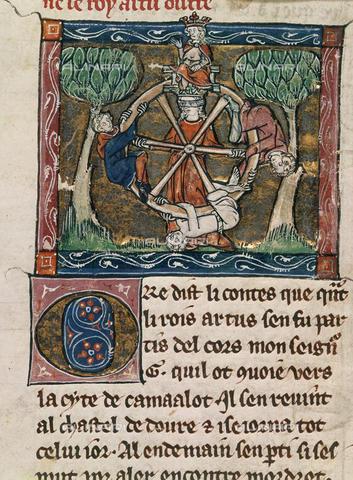 ne le roy artu outre
ALINARI
ALINARI
Ore dist li contes que qnt
li rois artus sen fu par
tis del cors mon seign
G. quil ot enuoie vers
la cyte de camaalot Il sen reuint
al chastel de doure & i seiorna tot
celui ior. Al endemain sen pti si ses
mut por aler encontre mordret